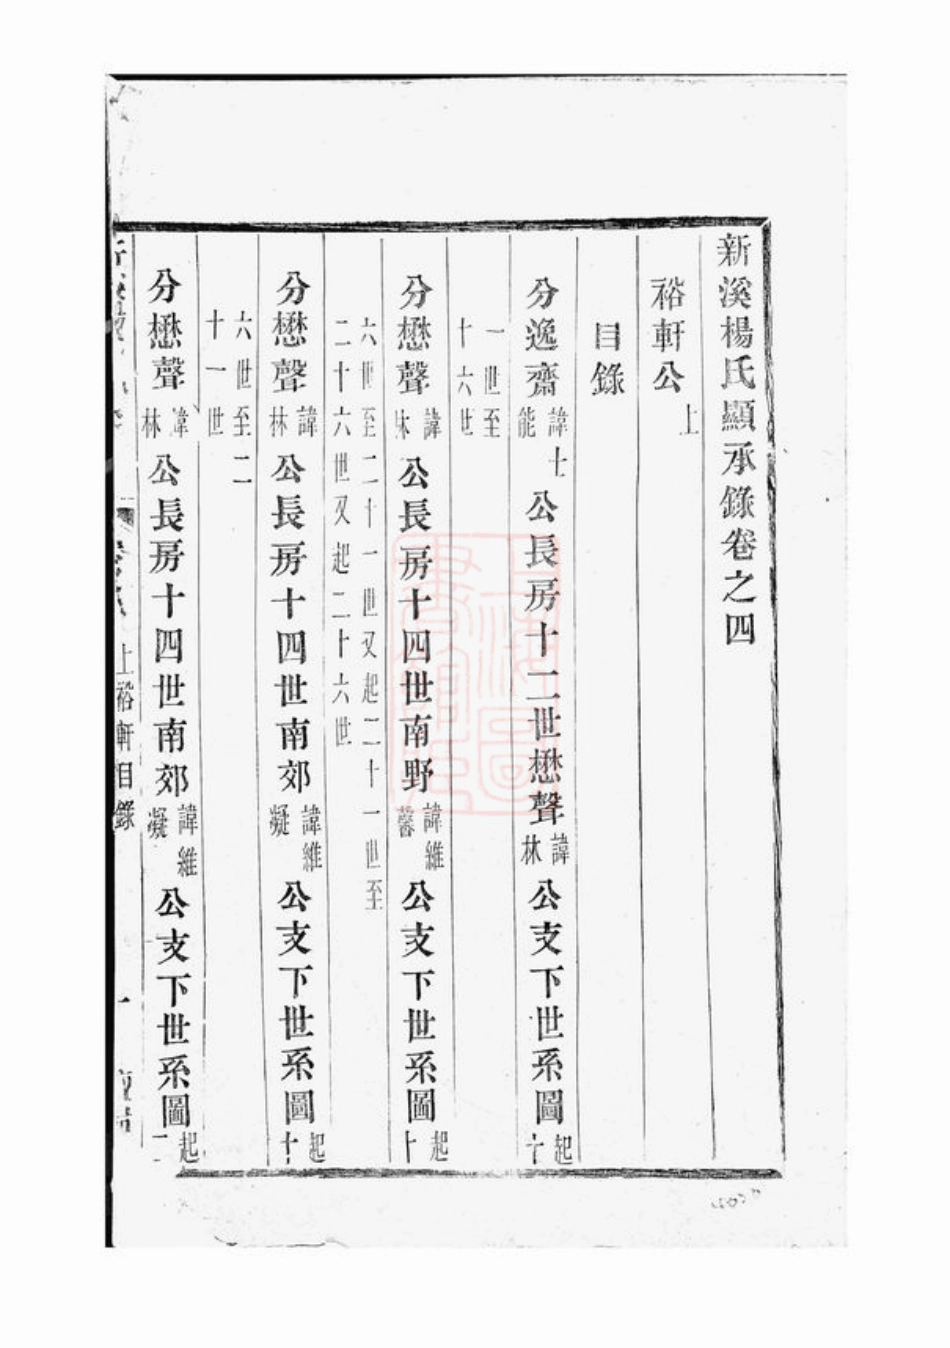 新溪楊氏顯承錄卷之四
裕軒公上
目錄
分逸齋諱士能公長房十二世懋聲諱林公支下世系圖起十
一世至十六世
分懋聲諱林公長房十四世南野諱維馨公支下世系圖起十
六世至二十一世又起二十一世至二十六世又起二十六世
分懋聲諱林公長房十四世南郊諱維凝公支下世系圖起十
六世至二十一世
分懋聲諱林公長房十四世南郊諱維凝公支下世系圖起二
上裕軒目錄
一